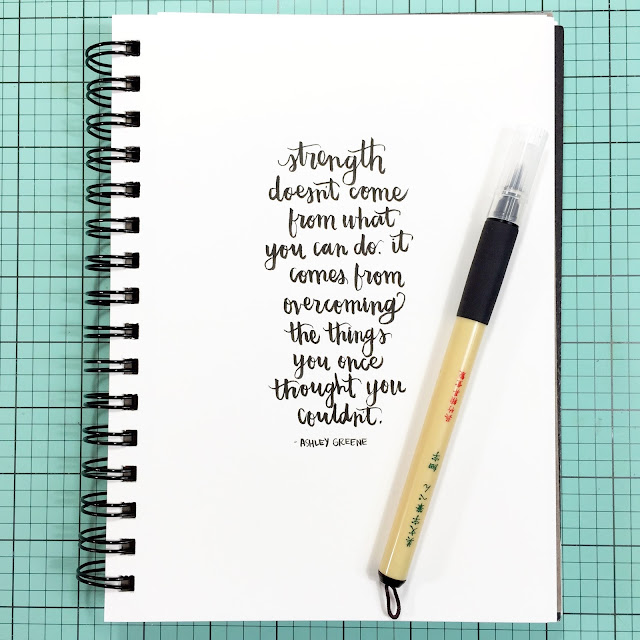 strength
doesn't come
from what
you can do. it
comes from
overcoming
the things
you once
thought you
couldn't.
- ASHLEY GREENE
美文字筆ぺん 細字